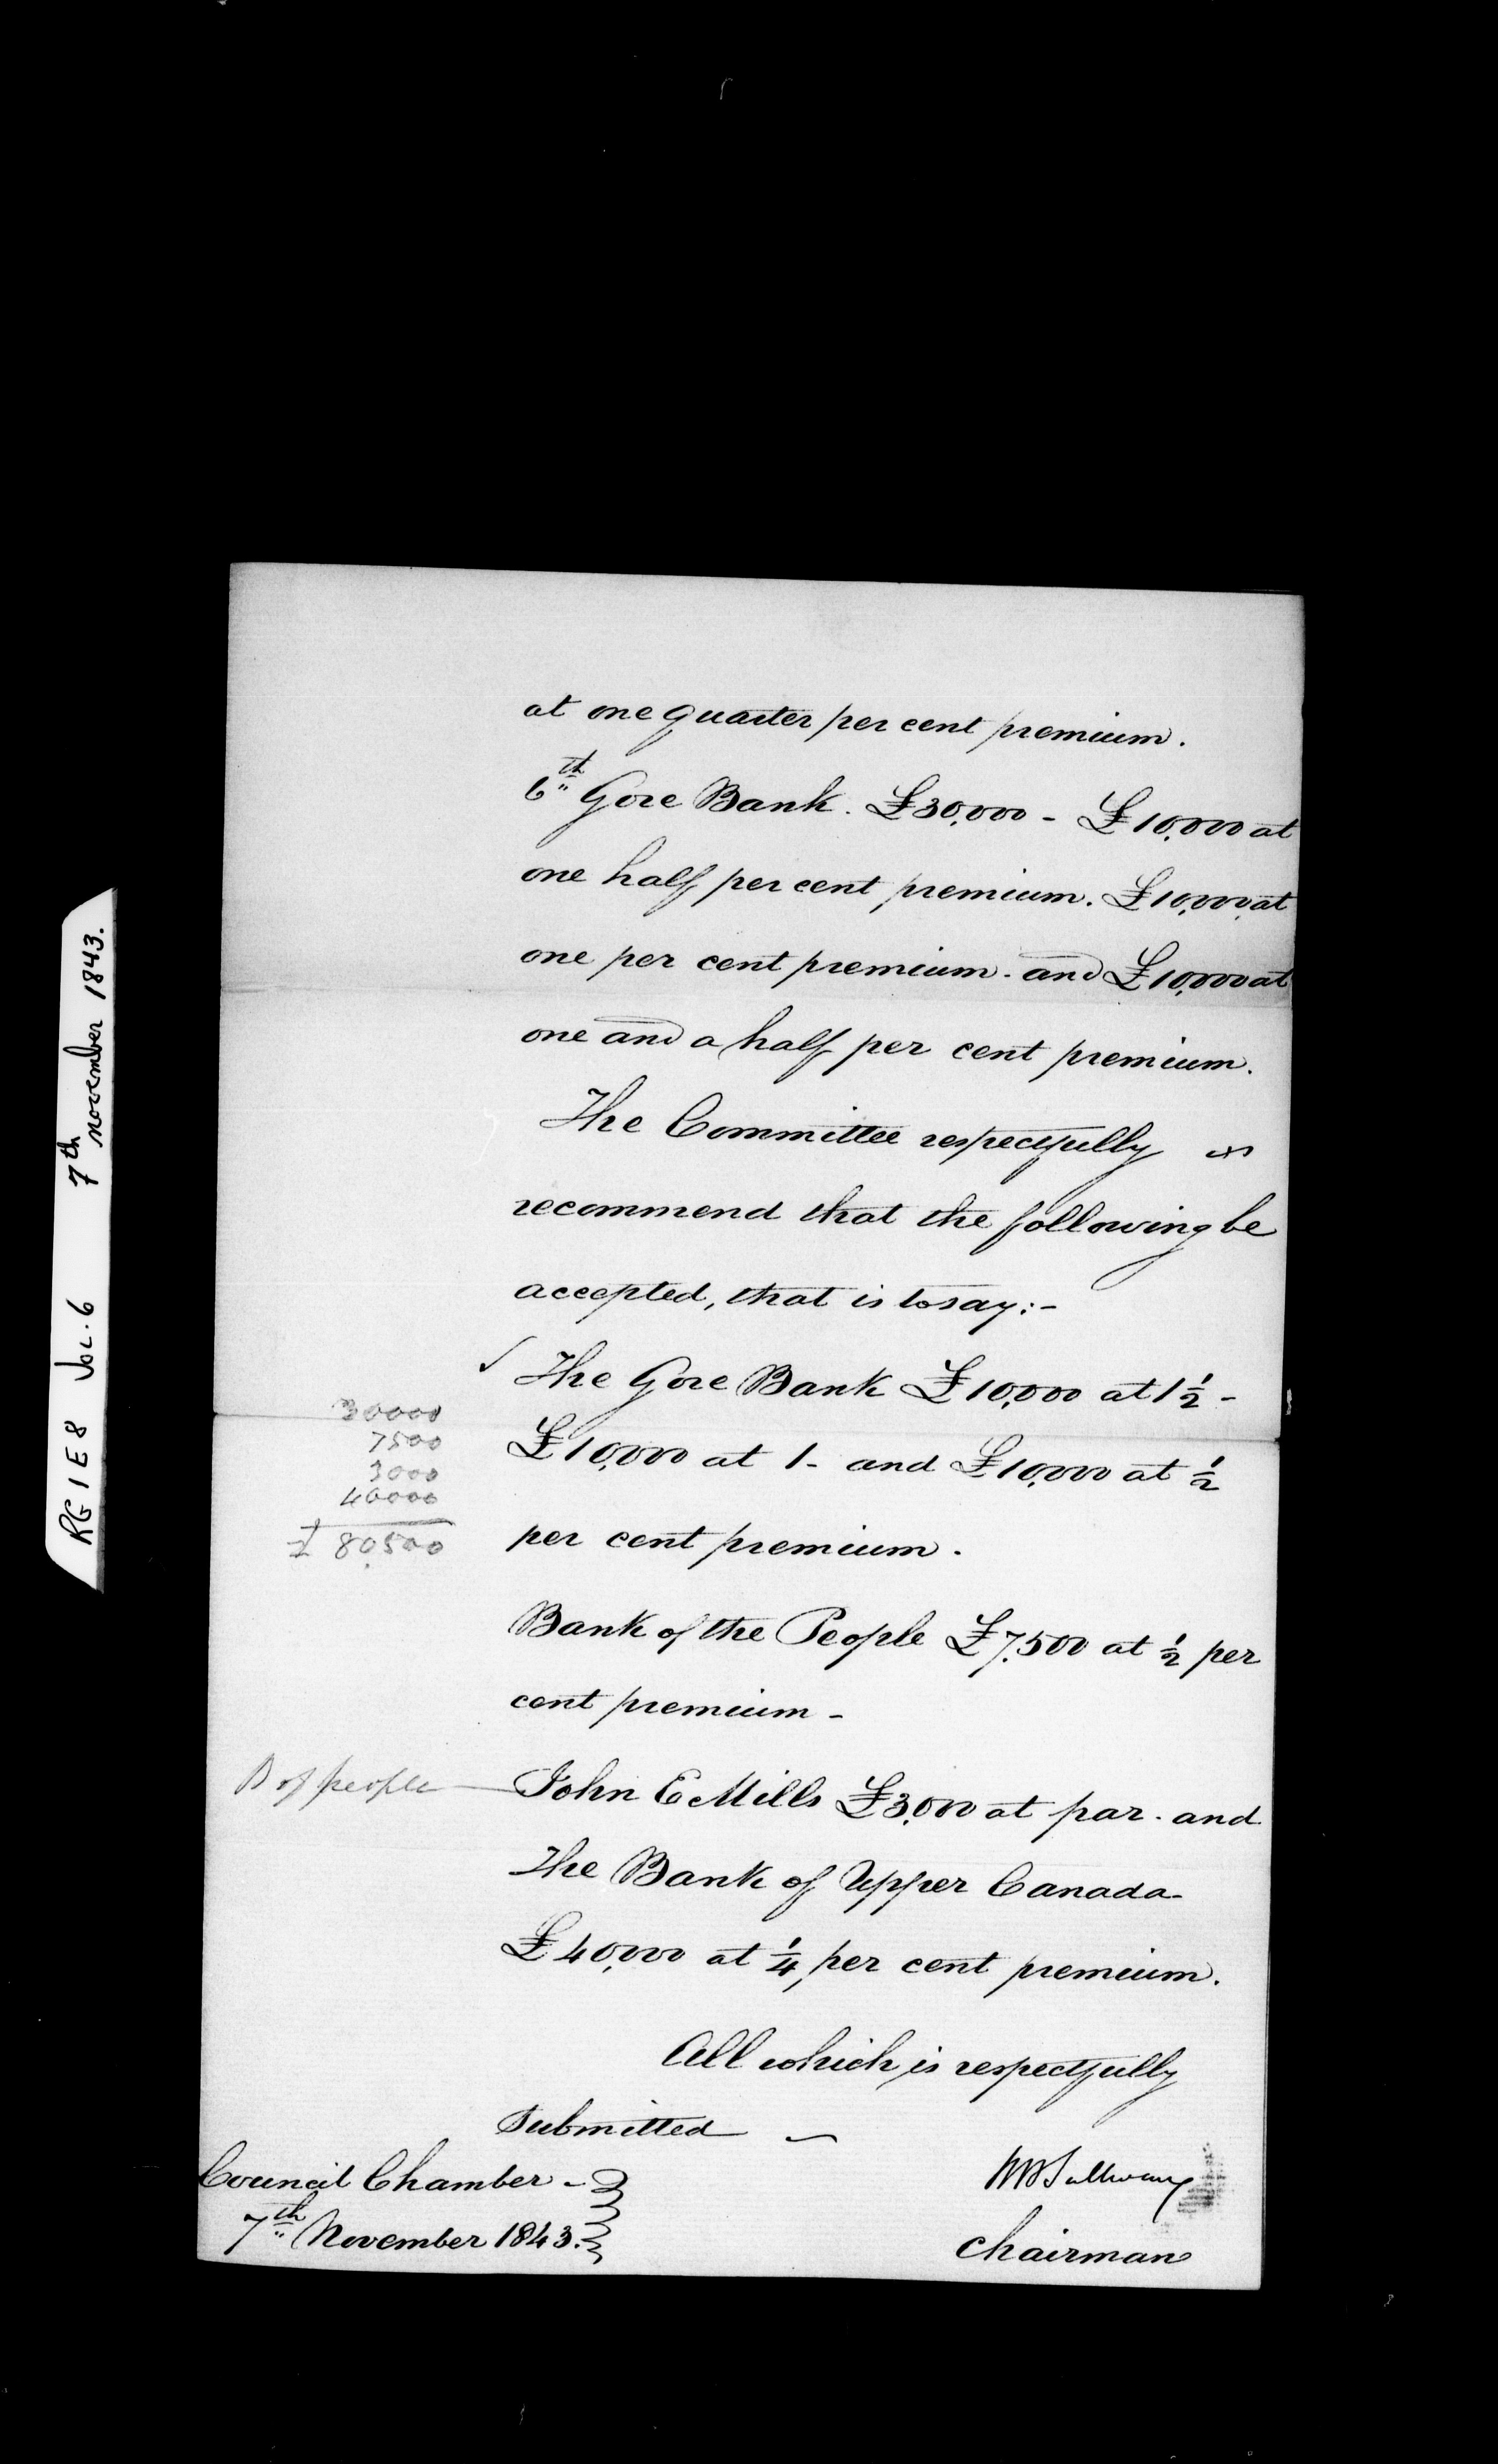 at one quarter per cent premium.
6th Gore Bank. £30,000 - £10,000 at
one half per cent premium. £10,000 at
one per cent premium. and £10,000 at
one and a half per cent premium.
The Committee respectfully
recommend that the following be
accepted, that is to say:-
✓ The Gore Bank £10,000 at 1½ -
£10,000 at 1 - and £10,000 at ½
per cent premium.
30000
7500
3000
40000
£ 80,500
Bank of the People £7,500 at ½ per
cent premium -
B of people — John E Mills £3,000 at par. and
The Bank of Upper Canada
£40,000 at ¼ per cent premium.
All which is respectfully
submitted
Council Chamber -
7th November 1843.
RBSullivan
Chairman
RG 1 E 8 Vol. 6 7th november 1843.